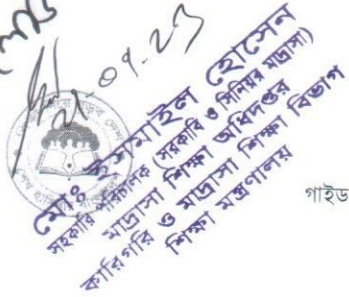 ০৭-২৩
মোঃ ইসমাইল হোসেন
সহকারি পরিচালক (সরকারি ও সিনিয়র মাদ্রাসা)
মাদ্রাসা শিক্ষা অধিদপ্তর
কারিগরি ও মাদ্রাসা শিক্ষা বিভাগ
শিক্ষা মন্ত্রণালয়
গাইড